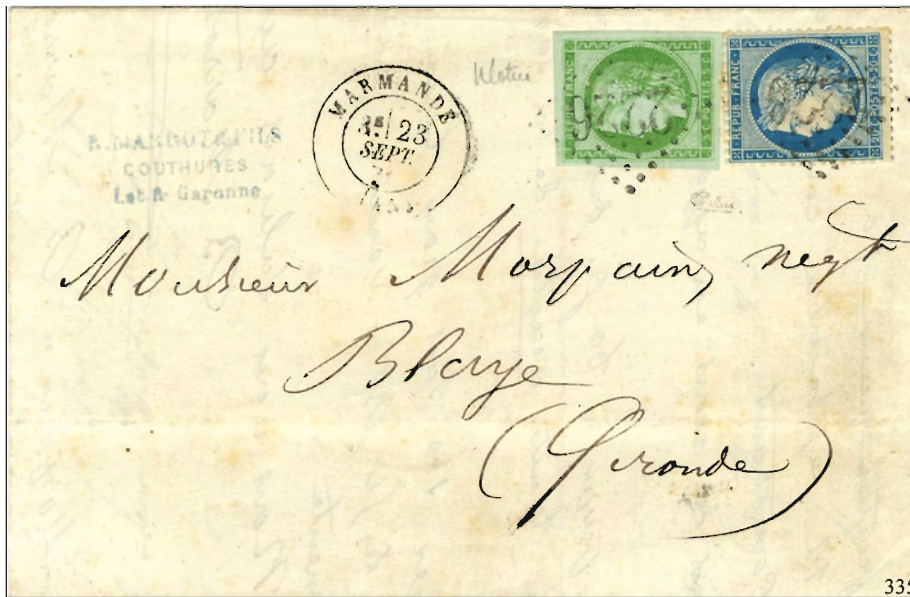 MARMANDE
23
SEPT.
& FILS
COUTHURES
Lot & Garonne
REPUB. FRANC.
2226
REPUB. FRANC.
POSTES 20 C
Monsieur Morpain negt
Blaye
(Gironde)
335